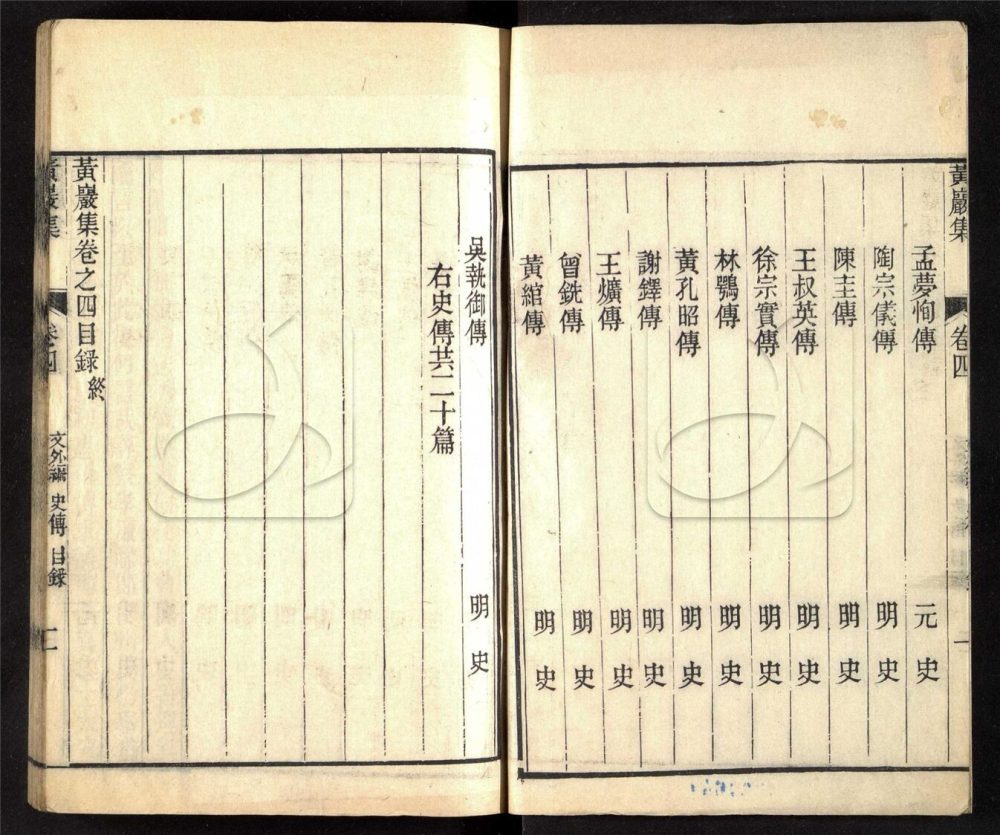 黃巖集 卷四 一
孟夢恂傳 元史
陶宗儀傳 明史
陳圭傳 明史
王叔英傳 明史
徐宗實傳 明史
林鶚傳 明史
黃孔昭傳 明史
謝鐸傳 明史
王爌傳 明史
曾銑傳 明史
黃綰傳 明史
吳執御傳 明史
右史傳共二十篇
黃巖集卷之四目錄終
黃巖集 卷四 文外編 史傳 目錄 二